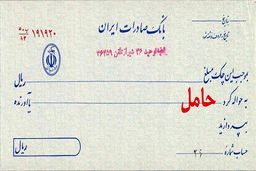 تاریخ
بانک صادرات ایران
۱۹۱۹۲۰
بموجب این چک مبلغ
ریال
به حواله کرد حامل
یا آورنده
بپردازند
حساب شماره
ریال